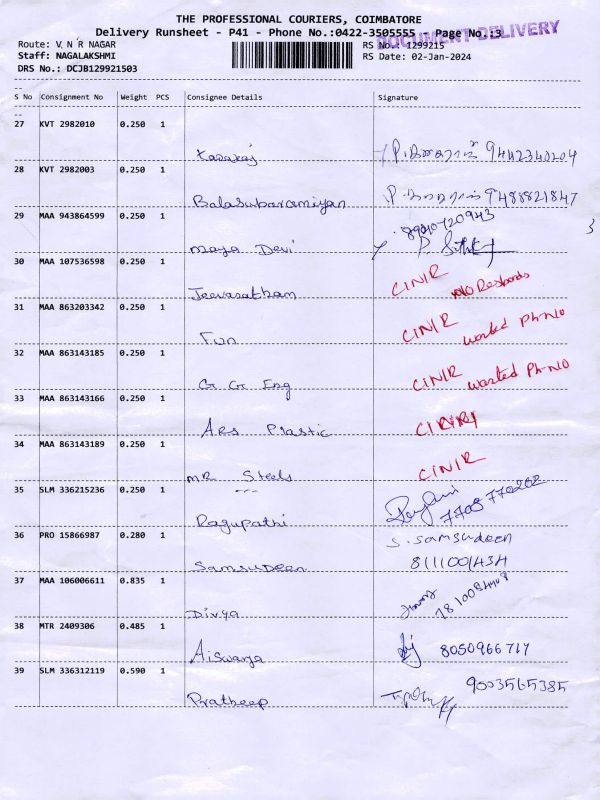 THE PROFESSIONAL COURIERS, COIMBATORE
Delivery Runsheet - P41 - Phone No.:0422-3505555 - Page No.:3
DOCUMENT DELIVERY
Route: V N R NAGAR RS No.: 1299215
Staff: NAGALAKSHMI RS Date: 02-Jan-2024
DRS No.: DCJB129921503
S No Consignment No Weight PCS Consignee Details Signature
27 KVT 2982010 0.250 1
9442340204
28 KVT 2982003 0.250 1
Balasubaramiyan 9488821847
29 MAA 943864599 0.250 1
Maya Devi
30 MAA 107536598 0.250 1 C/N/R
Jeevaratham No Responds
31 MAA 863203342 0.250 1 C/N/R
Fun wanted Ph-No
32 MAA 863143185 0.250 1 C/N/R wanted Ph-No
G. G. Eng
33 MAA 863143166 0.250 1
ARS Plastic
34 MAA 863143189 0.250 1 C/N/R
MR Steels
35 SLM 336215236 0.250 1
Ragupathi
36 PRO 15866987 0.280 1 S. Samsudeen
Samsudeen 8111001434
37 MAA 106006611 0.835 1
Divya
38 MTR 2409306 0.485 1
Aiswarya 8050966717
39 SLM 336312119 0.590 1 9003565385
Pratheep